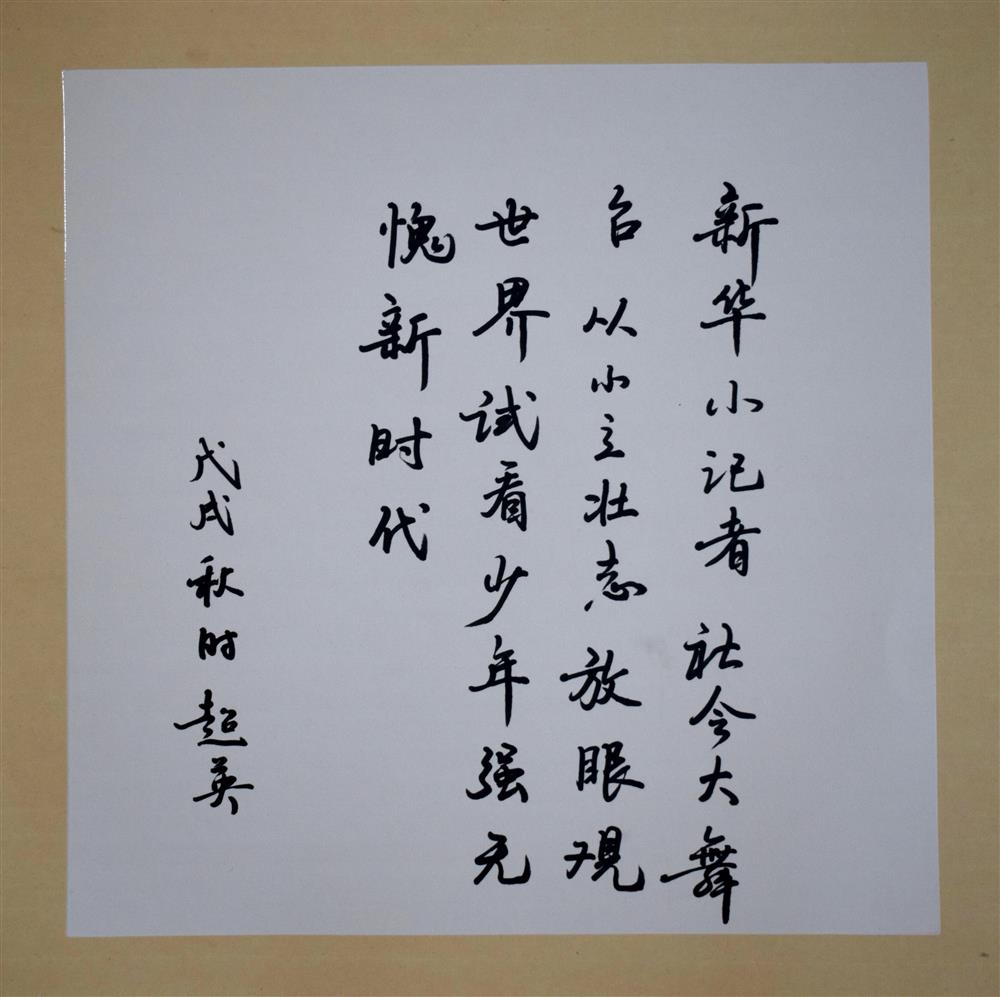 新华小记者社会大舞
台从小立壮志放眼观
世界试看少年强无
愧新时代
戊戌秋时超英